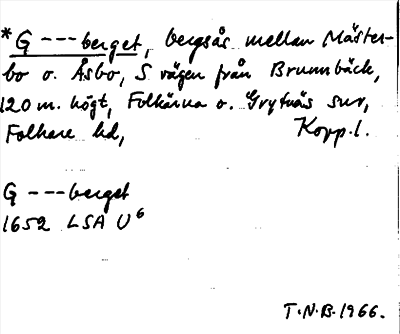 *G ---berget, bergsås mellan Mäster-
bo o. Åsbo, S vägen från Brunnbäck,
120 m. högt, Folkärna o. Grytnäs snr,
Folkare hd, Kopp.l.
G ---berget
1652 LSA U⁶
T.N.B. 1966.